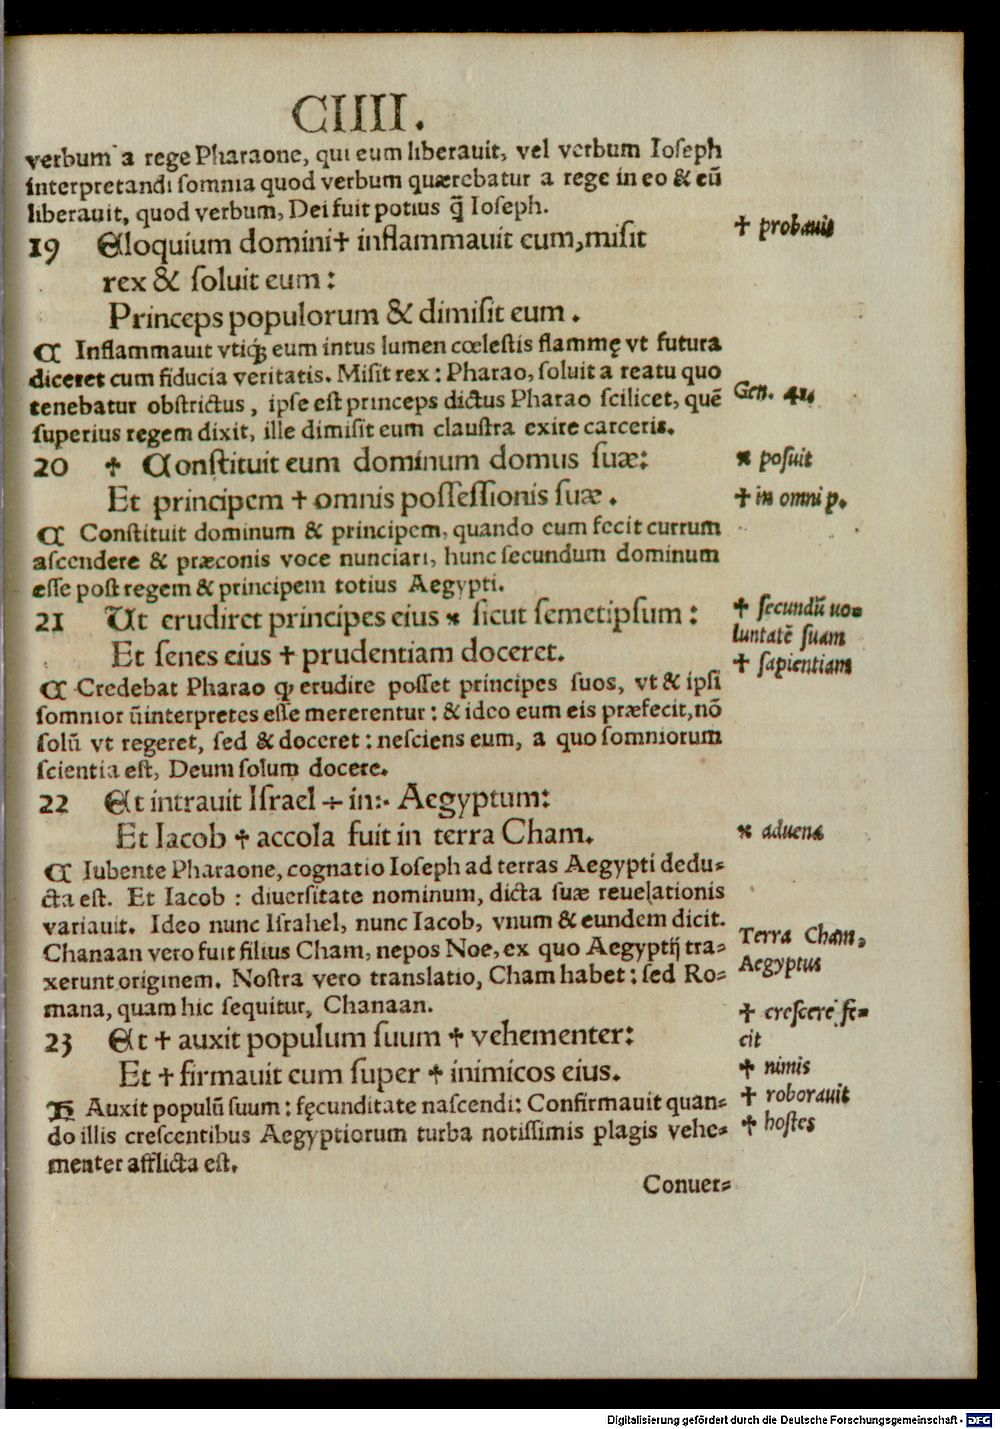 CIIII.
verbum a rege Pharaone, qui eum liberauit, vel verbum Ioſeph
interpretandi ſomnia quod verbum quærebatur a rege in eo & eū
liberauit, quod verbum, Dei fuit potius q̃ Ioſeph.
19 Eloquium domini† inflammauit eum, miſit
† probauit
rex & ſoluit eum:
Princeps populorum & dimiſit eum.
¶ Inflammauit vtiqꝫ eum intus lumen cœleſtis flammę vt futura
diceret cum fiducia veritatis. Miſit rex: Pharao, ſoluit a reatu quo
tenebatur obſtrictus, ipſe eſt princeps dictus Pharao ſcilicet, quē
Gen. 41.
ſuperius regem dixit, ille dimiſit eum clauſtra exire carceris.
20 † Conſtituit eum dominum domus ſuæ:
* poſuit
Et principem † omnis poſſeſſionis ſuæ.
† in omni p.
¶ Conſtituit dominum & principem, quando eum fecit currum
aſcendere & præconis voce nunciari, hunc ſecundum dominum
eſſe poſt regem & principem totius Aegypti.
21 Ut erudiret principes eius * ſicut ſemetipſum:
† ſecundū uo⸗
luntatē ſuam
Et ſenes eius † prudentiam doceret.
† ſapientiam
¶ Credebat Pharao ꝙ erudire poſſet principes ſuos, vt & ipſi
ſomnior ūinterpretes eſſe mererentur: & ideo eum eis præfecit, nō
ſolū vt regeret, ſed & doceret: neſciens eum, a quo ſomniorum
ſcientia eſt, Deum ſolum docere.
22 Et intrauit Iſrael ÷ in:· Aegyptum:
Et Iacob † accola fuit in terra Cham.
* aduena
¶ Iubente Pharaone, cognatio Ioſeph ad terras Aegypti dedu⸗
cta eſt. Et Iacob: diuerſitate nominum, dicta ſuæ reuelationis
variauit. Ideo nunc Iſrahel, nunc Iacob, vnum & eundem dicit.
Chanaan vero fuit filius Cham, nepos Noe, ex quo Aegyptij tra⸗
Terra Cham,
Aegyptus
xerunt originem. Noſtra vero translatio, Cham habet: ſed Ro⸗
mana, quam hic ſequitur, Chanaan.
23 Et † auxit populum ſuum † vehementer:
† creſcere fe⸗
cit
Et † firmauit eum ſuper † inimicos eius.
† nimis
† roborauit
† hoſtes
¶ Auxit populū ſuum: fęcunditate naſcendi: Confirmauit quan⸗
do illis creſcentibus Aegyptiorum turba notiſſimis plagis vehe⸗
menter afflicta eſt.
Conuer⸗
Digitalisierung gefördert durch die Deutsche Forschungsgemeinschaft - DFG